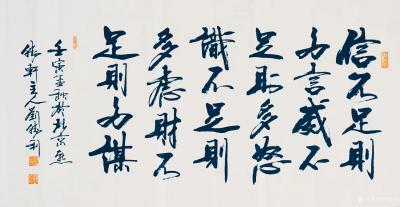 信不足則
多言威不
足則多怒
識不足則
多慮財不
足則多謀
壬寅孟秋於北京
軒主人劉勝利